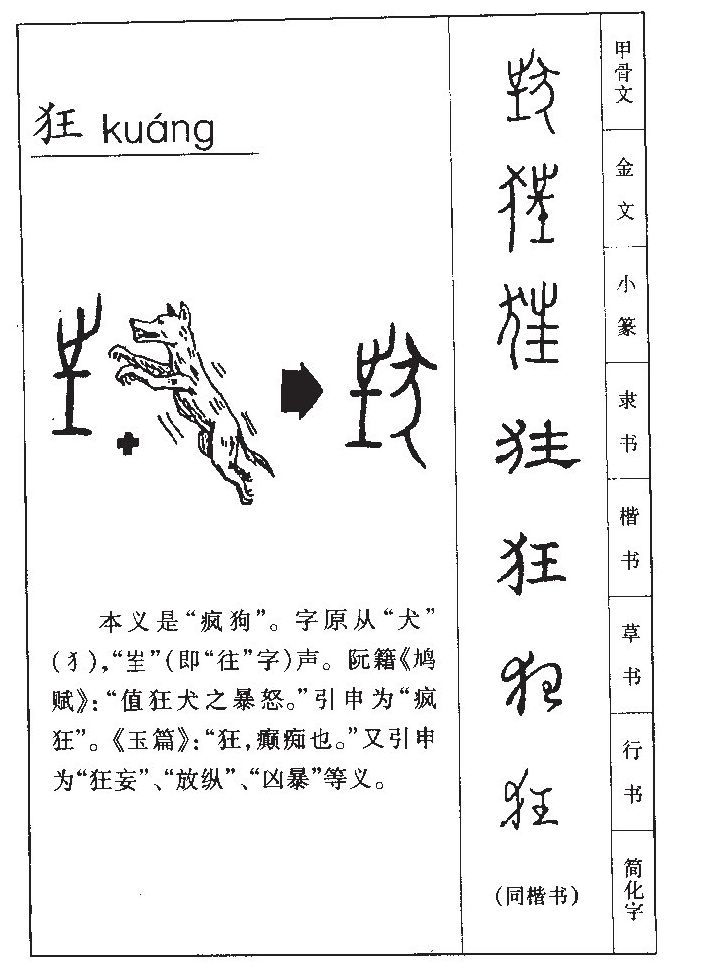 狂 kuáng
本义是“疯狗”。字原从“犬”
(犭),“㞷”(即“往”字)声。阮籍《鸠
赋》:“值狂犬之暴怒。”引申为“疯
狂”。《玉篇》:“狂,癫痴也。”又引申
为“狂妄”、“放纵”、“凶暴”等义。
甲骨文
金文
小篆
狂
隶书
狂
楷书
狂
草书
狂
行书
(同楷书)
简化字